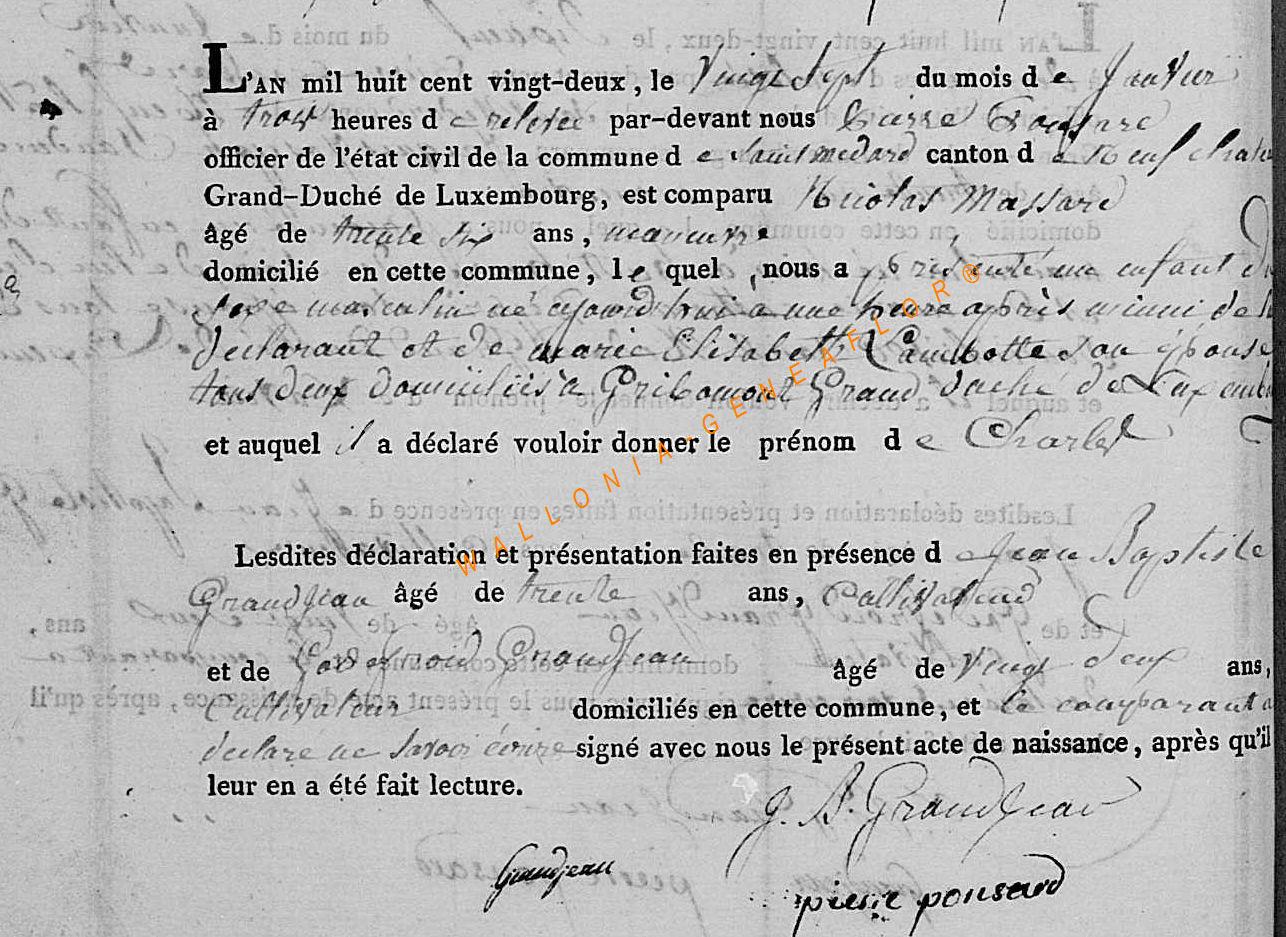 L'AN mil huit cent vingt-deux, le Vingt Sept du mois de Janvier
à trois heures de relevée par-devant nous Pierre Ponsard
officier de l'état civil de la commune de Saint medard canton de Neufchate
Grand-Duché de Luxembourg, est comparu Nicolas Massard
âgé de trente Six ans, manœuvre
domicilié en cette commune, lequel nous a présenté un enfant du
sexe masculin né ajourd'hui a une heure après minui de l
declarant et de marie Elisabeth Lambotte son épouse
tous deux domiciliés a Gribomont Grand duché de Luxemb
et auquel il a déclaré vouloir donner le prénom de Charles
Lesdites déclaration et présentation faites en présence de Jean Baptiste
GrandJean âgé de trente ans, Cultivateur
et de GrandJean âgé de Vingt deux ans,
Cultivateur domiciliés en cette commune, et le comparant a
declaré ne savoir écrire signé avec nous le présent acte de naissance, après qu'il
leur en a été fait lecture.
J. B. GrandJean
Grandjean
pierre ponsard
WALLONIA-GENEAFLOR®